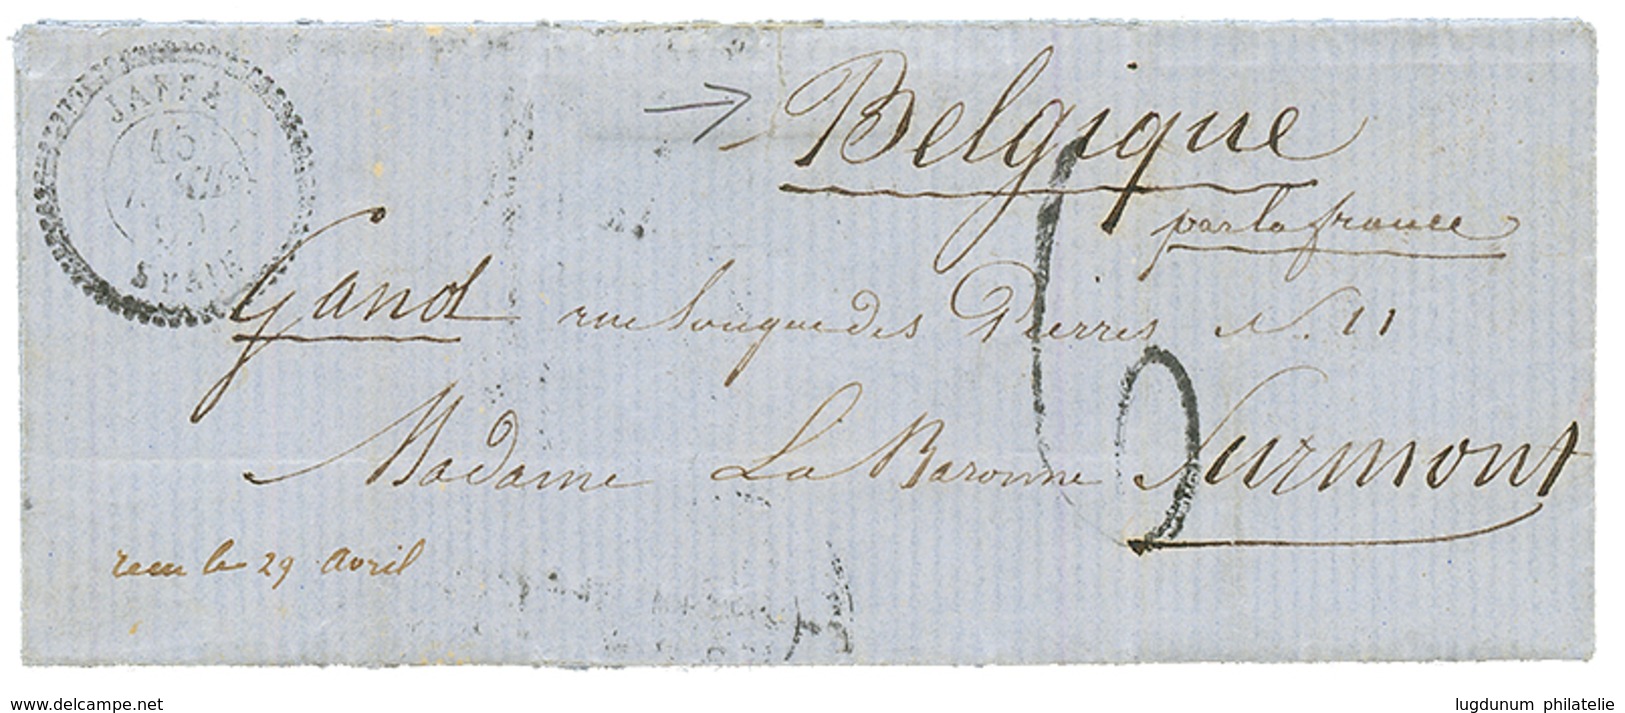 JAFFA
15
SYRIE
Belgique
par la france
Gand rue longue des Pierres N. 11
Madame La Baronne Surmont
recu le 29 avril
www.delcampe.net
lugdunum philatelie